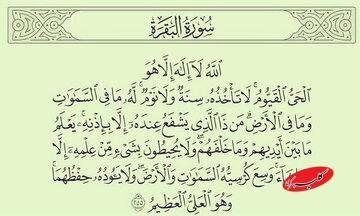 سُورَةُ الْبَقَرَةِ
اللَّهُ لَا إِلَٰهَ إِلَّا هُوَ
الْحَيُّ الْقَيُّومُ ۚ لَا تَأْخُذُهُ سِنَةٌ وَلَا نَوْمٌ ۚ لَهُ مَا فِي السَّمَاوَاتِ
وَمَا فِي الْأَرْضِ ۗ مَن ذَا الَّذِي يَشْفَعُ عِندَهُ إِلَّا بِإِذْنِهِ ۚ يَعْلَمُ
مَا بَيْنَ أَيْدِيهِمْ وَمَا خَلْفَهُمْ ۖ وَلَا يُحِيطُونَ بِشَيْءٍ مِّنْ عِلْمِهِ إِلَّا
شَاءَ ۚ وَسِعَ كُرْسِيُّهُ السَّمَاوَاتِ وَالْأَرْضَ ۖ وَلَا يَئُودُهُ حِفْظُهُمَا ۚ
وَهُوَ الْعَلِيُّ الْعَظِيمُ ٢٥٥